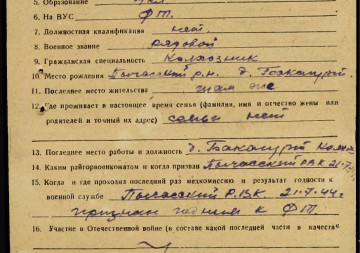 5. Образование
6. На ВУС ф.т.
7. Должностная квалификация нет
8. Военное звание рядовой
9. Гражданская специальность Колхозник
10. Место рождения р.н. д.
11. Последнее место жительства там же
12. Где проживает в настоящее время семья (фамилия, имя и отчество жены или
родителей и точный их адрес) семьи нет
13. Последнее место работы и должность д.
14. Каким райгорвоенкоматом и когда призван РВК 21-7-
15. Когда и где проходил последний раз медкомиссию и результат годности к
военной службе Р.В.К. 21-7-44 г.
признан годным к ф.т.
16. Участие в Отечественной войне (в составе какой последней части в качестве